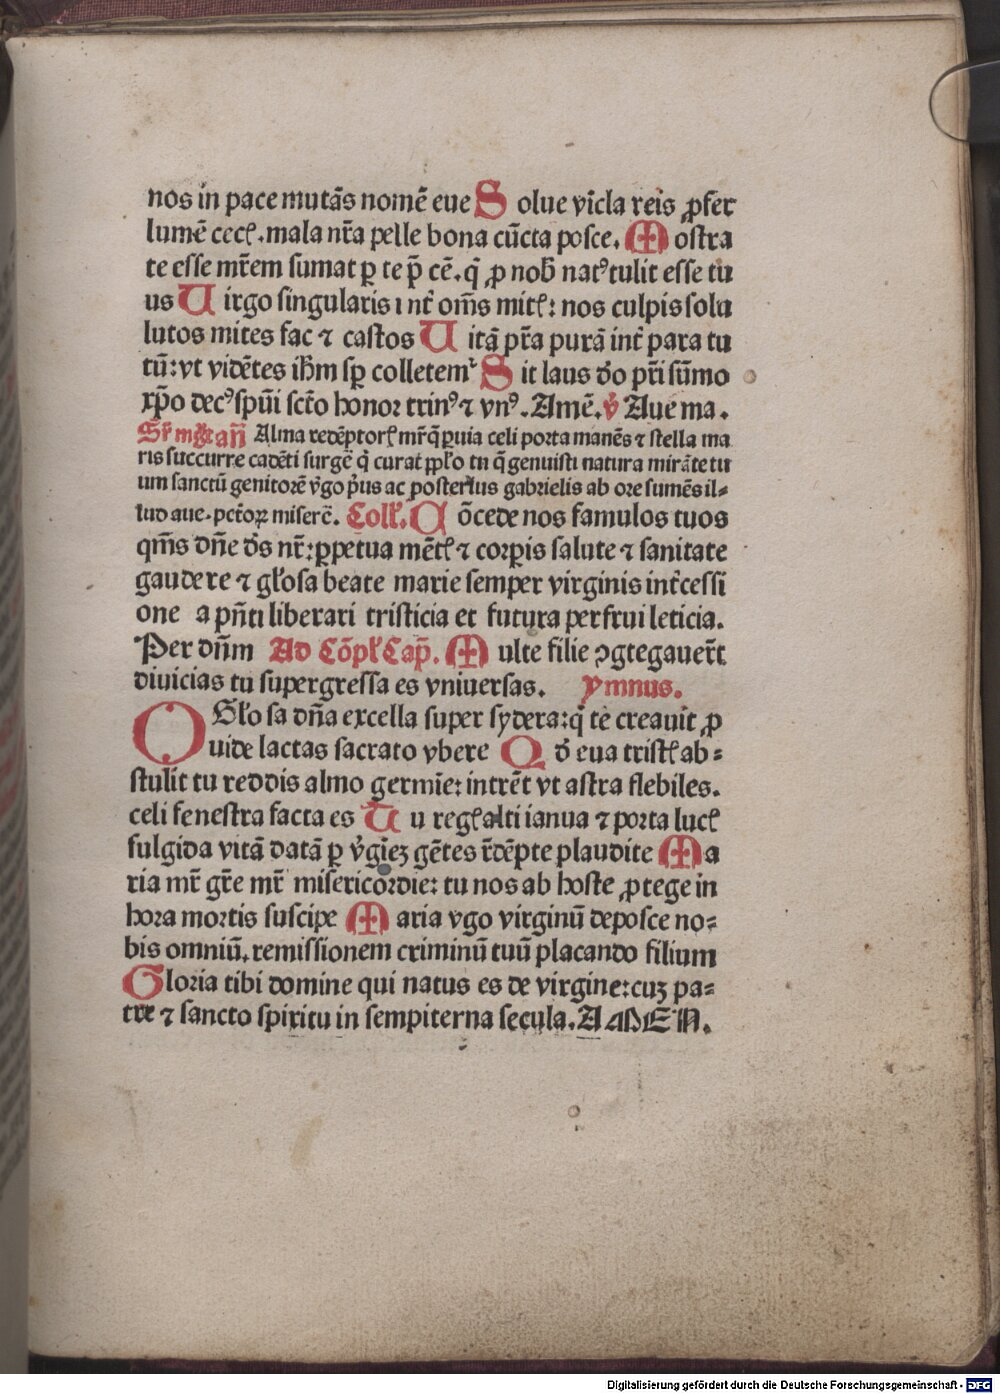 nos in pace mutās nomē eue S olue vīcla reis ꝓfer
lumē cecꝭ .mala nr̄a pelle bona cūcta posce. M ostra
te esse mr̄em sumat ꝑ te p̄ cē. q̄ ꝓ nob̄ natꝰ tulit esse tu
us U irgo singularis int̄ om̄s mitꝭ: nos culpis solu
lutos mites fac ⁊ castos U itā pr̄a purā int̄ para tu
tū: vt vidētes ih̄m sꝑ colletemᷣ S it laus d̄o pr̄i sūmo
xp̄o decꝰ sp̄ui sct̄o honor trinꝰ ⁊ vnꝰ. Amē. v̄ Aue ma.
Alma redēptorꝭ mr̄ q̄ ꝑuia celi porta manēs ⁊ stella ma
ris succurre cadēti surgē q̄ curat ppl̄o tu q̄ genuisti natura mirāte tu
um sanctū genitorē v̄go p̄us ac posterius gabrielis ab ore sumēs il-
lud aue. pctōꝝ miserē. Coll̄. C ōcede nos famulos tuos
qm̄s dn̄e d̄s nr̄: ꝑpetua mētꝭ ⁊ corꝑis salute ⁊ sanitate
gaudere ⁊ gl̄osa beate marie semper virginis int̄cessi
one a pn̄ti liberari tristicia et futura perfrui leticia.
Per dn̄m Ad Cōpl̄ Cap̄. M ulte filie ꝯgtegauer̄t
diuicias tu supergressa es vniuersas. ymnus.
O Gl̄o sa dn̄a excella super sydera: q̄ te creauit ꝓ
uide lactas sacrato vbere Q d̄ eua tristꝭ ab-
stulit tu reddis almo germīe: intrēt vt astra flebiles.
celi fenestra facta es T u regꝭ alti ianua ⁊ porta lucꝭ
fulgida vitā datā ꝑ v̄gīeꝫ gētes r̄dēpte plaudite Ma
ria mr̄ gr̄e mr̄ misericordie: tu nos ab hoste ꝓtege in
hora mortis suscipe M aria vgo virginū deposce no-
bis omniū. remissionem criminū tuū placando filium
Gloria tibi domine qui natus es de virgine: cuꝫ pa-
tre ⁊ sancto spiritu in sempiterna secula. AMEN.
Digitalisierung gefördert durch die Deutsche Forschungsgemeinschaft - DFG